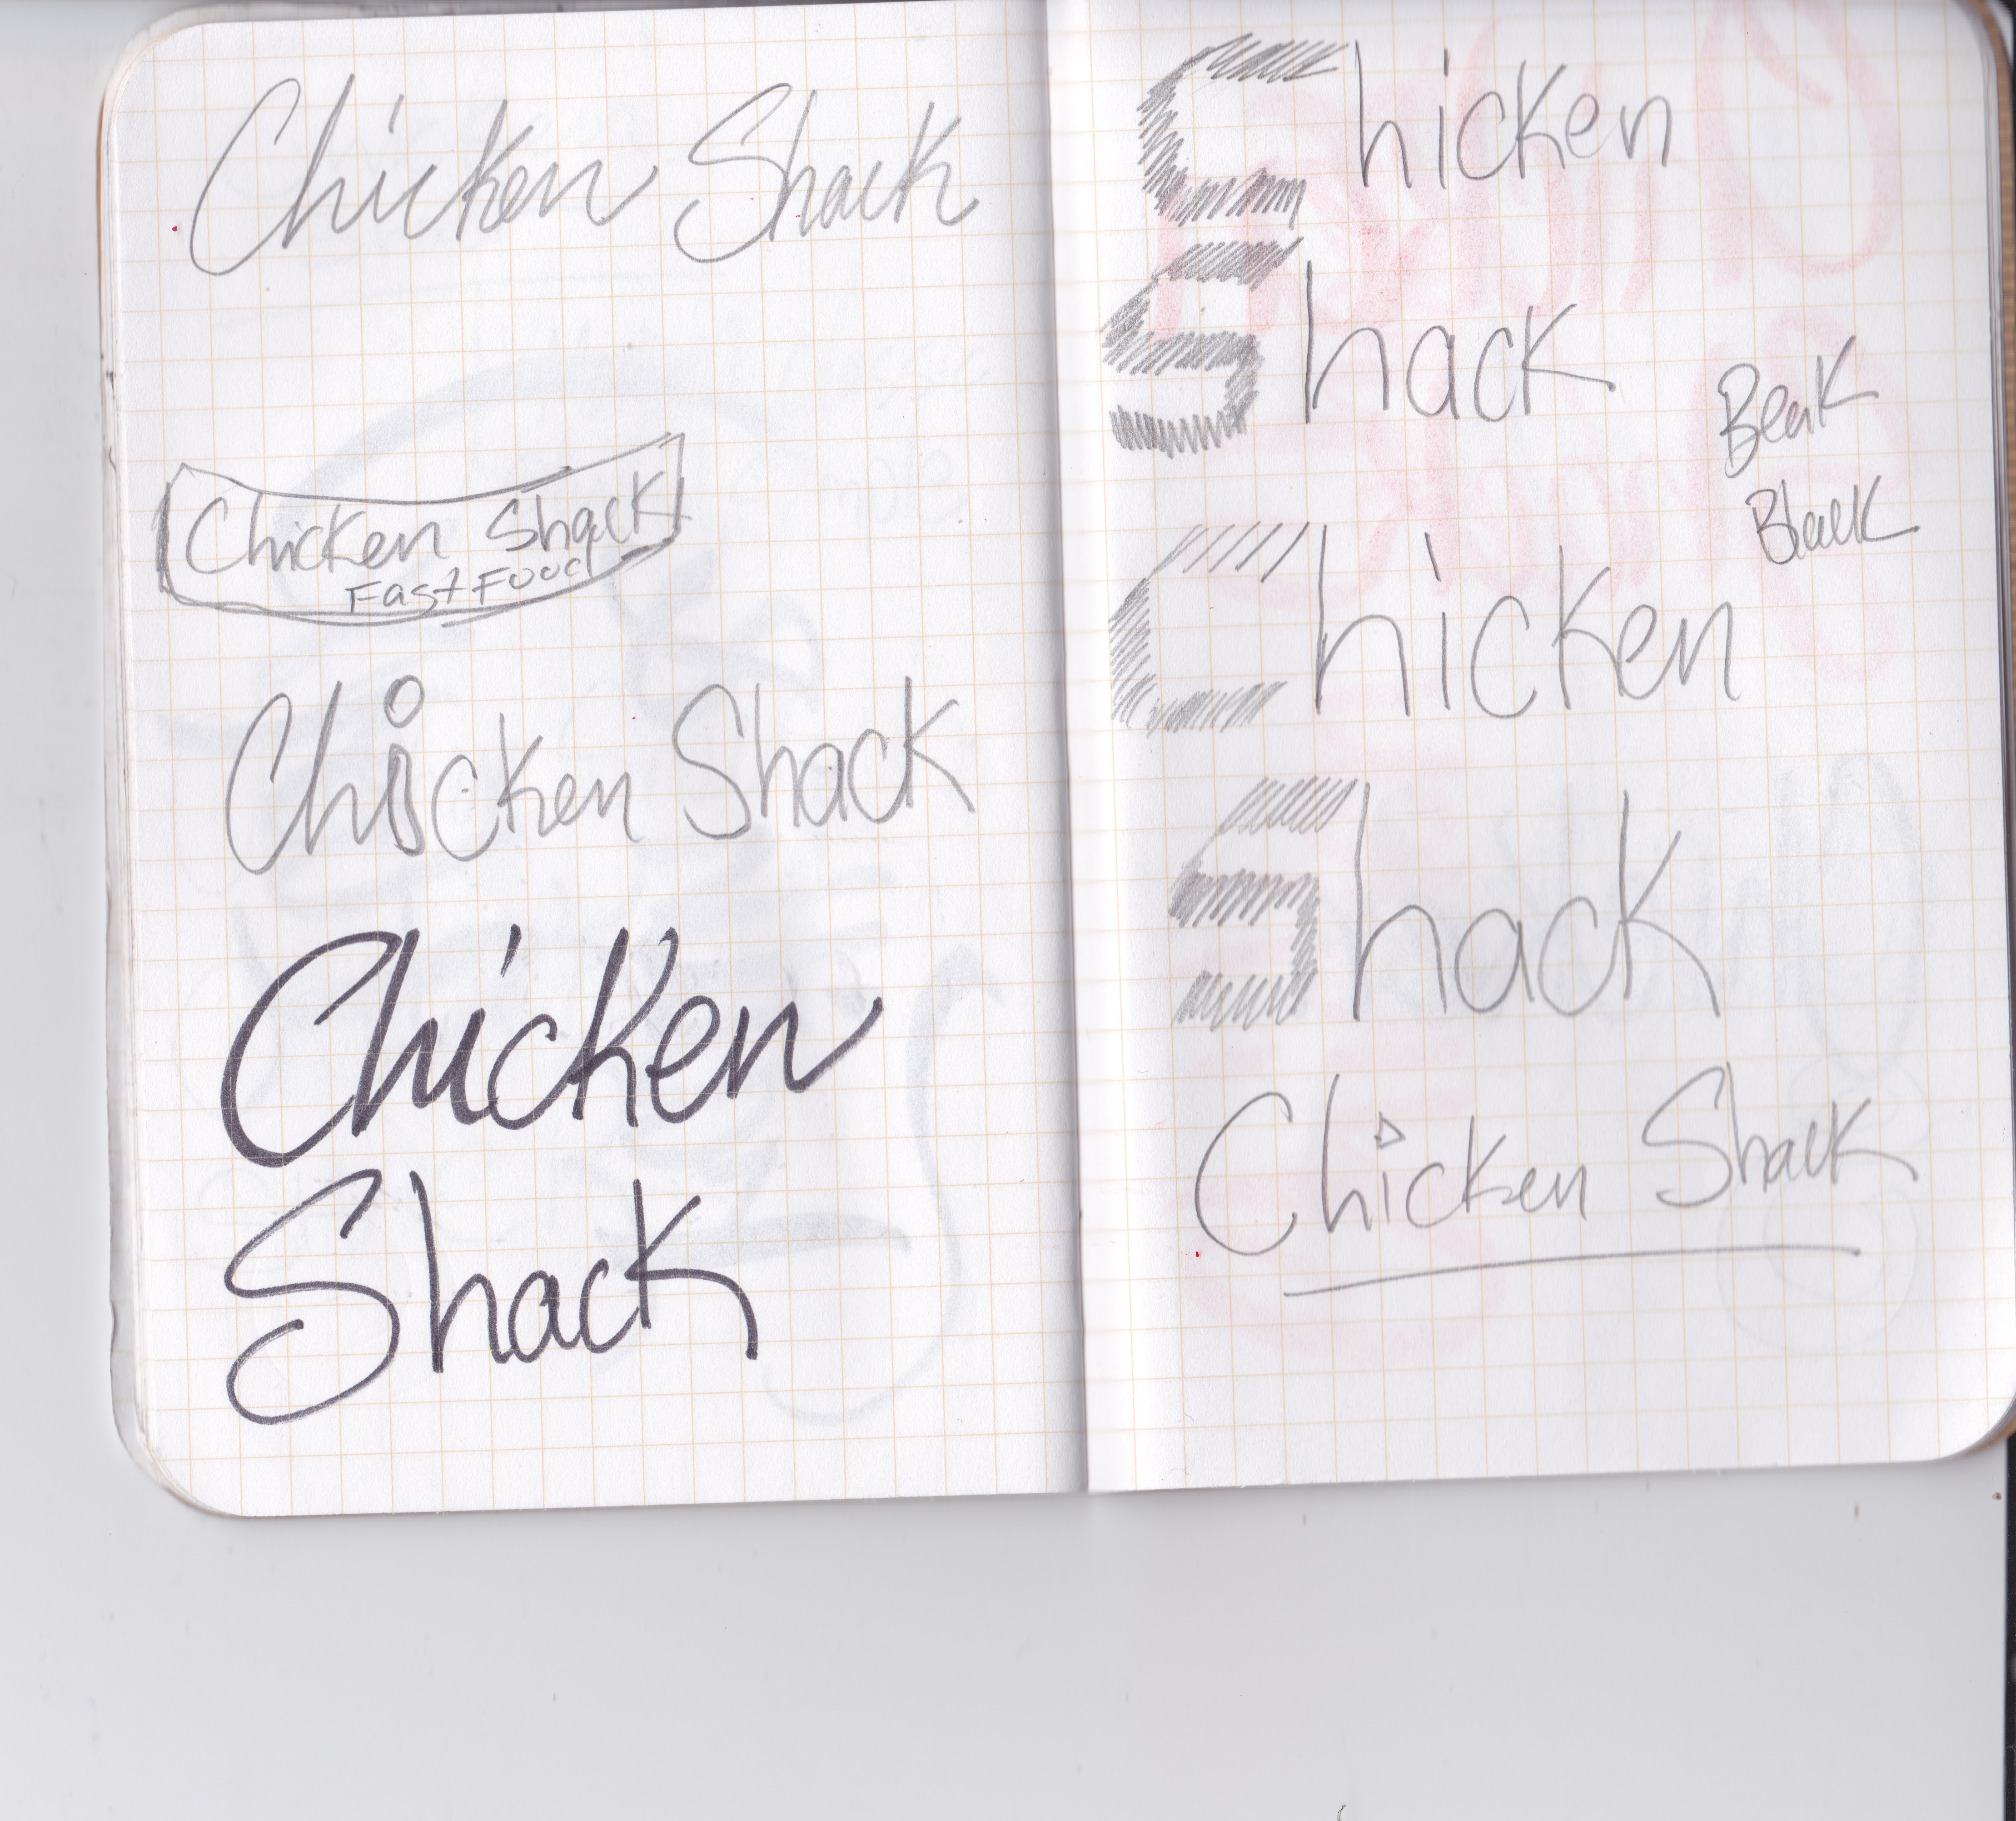 Chicken Shack
Chicken Shack
Fast Food
Chicken Shack
Chicken
Shack
Chicken
Shack
Beak
Black
Chicken
Shack
Chicken Shack